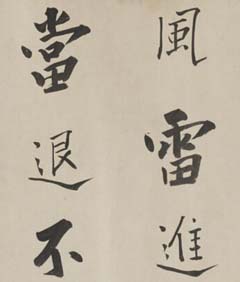 風雷進
當退不